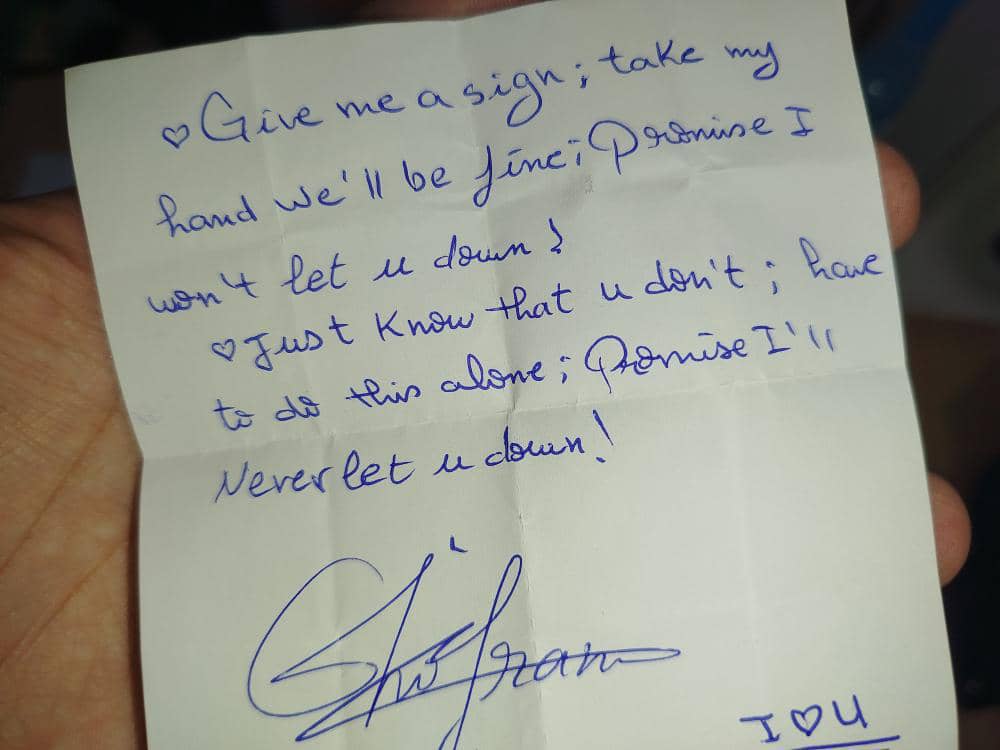 ♡ Give me a sign; take my
hand we'll be fine; Promise I
won't let u down!
♡ Just Know that u don't; have
to do this alone; Promise I'll
Never let u down!
I ♡ U